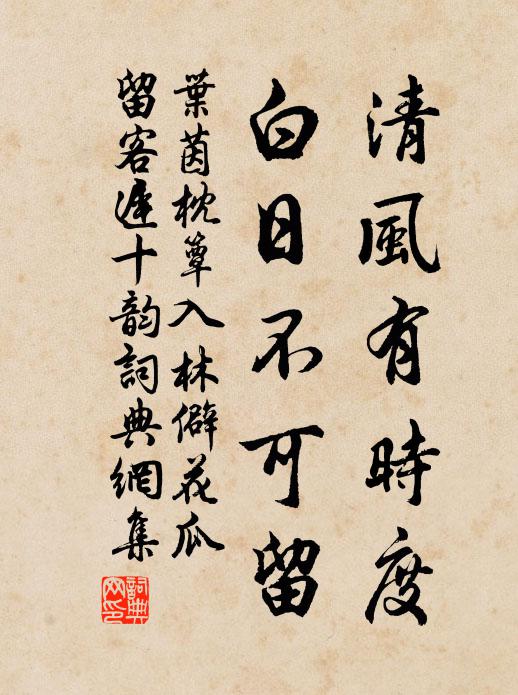 清風有時度
白日不可留
葉茵枕簟入林僻花瓜
留客遲十韵詞典網集
詞典
网印